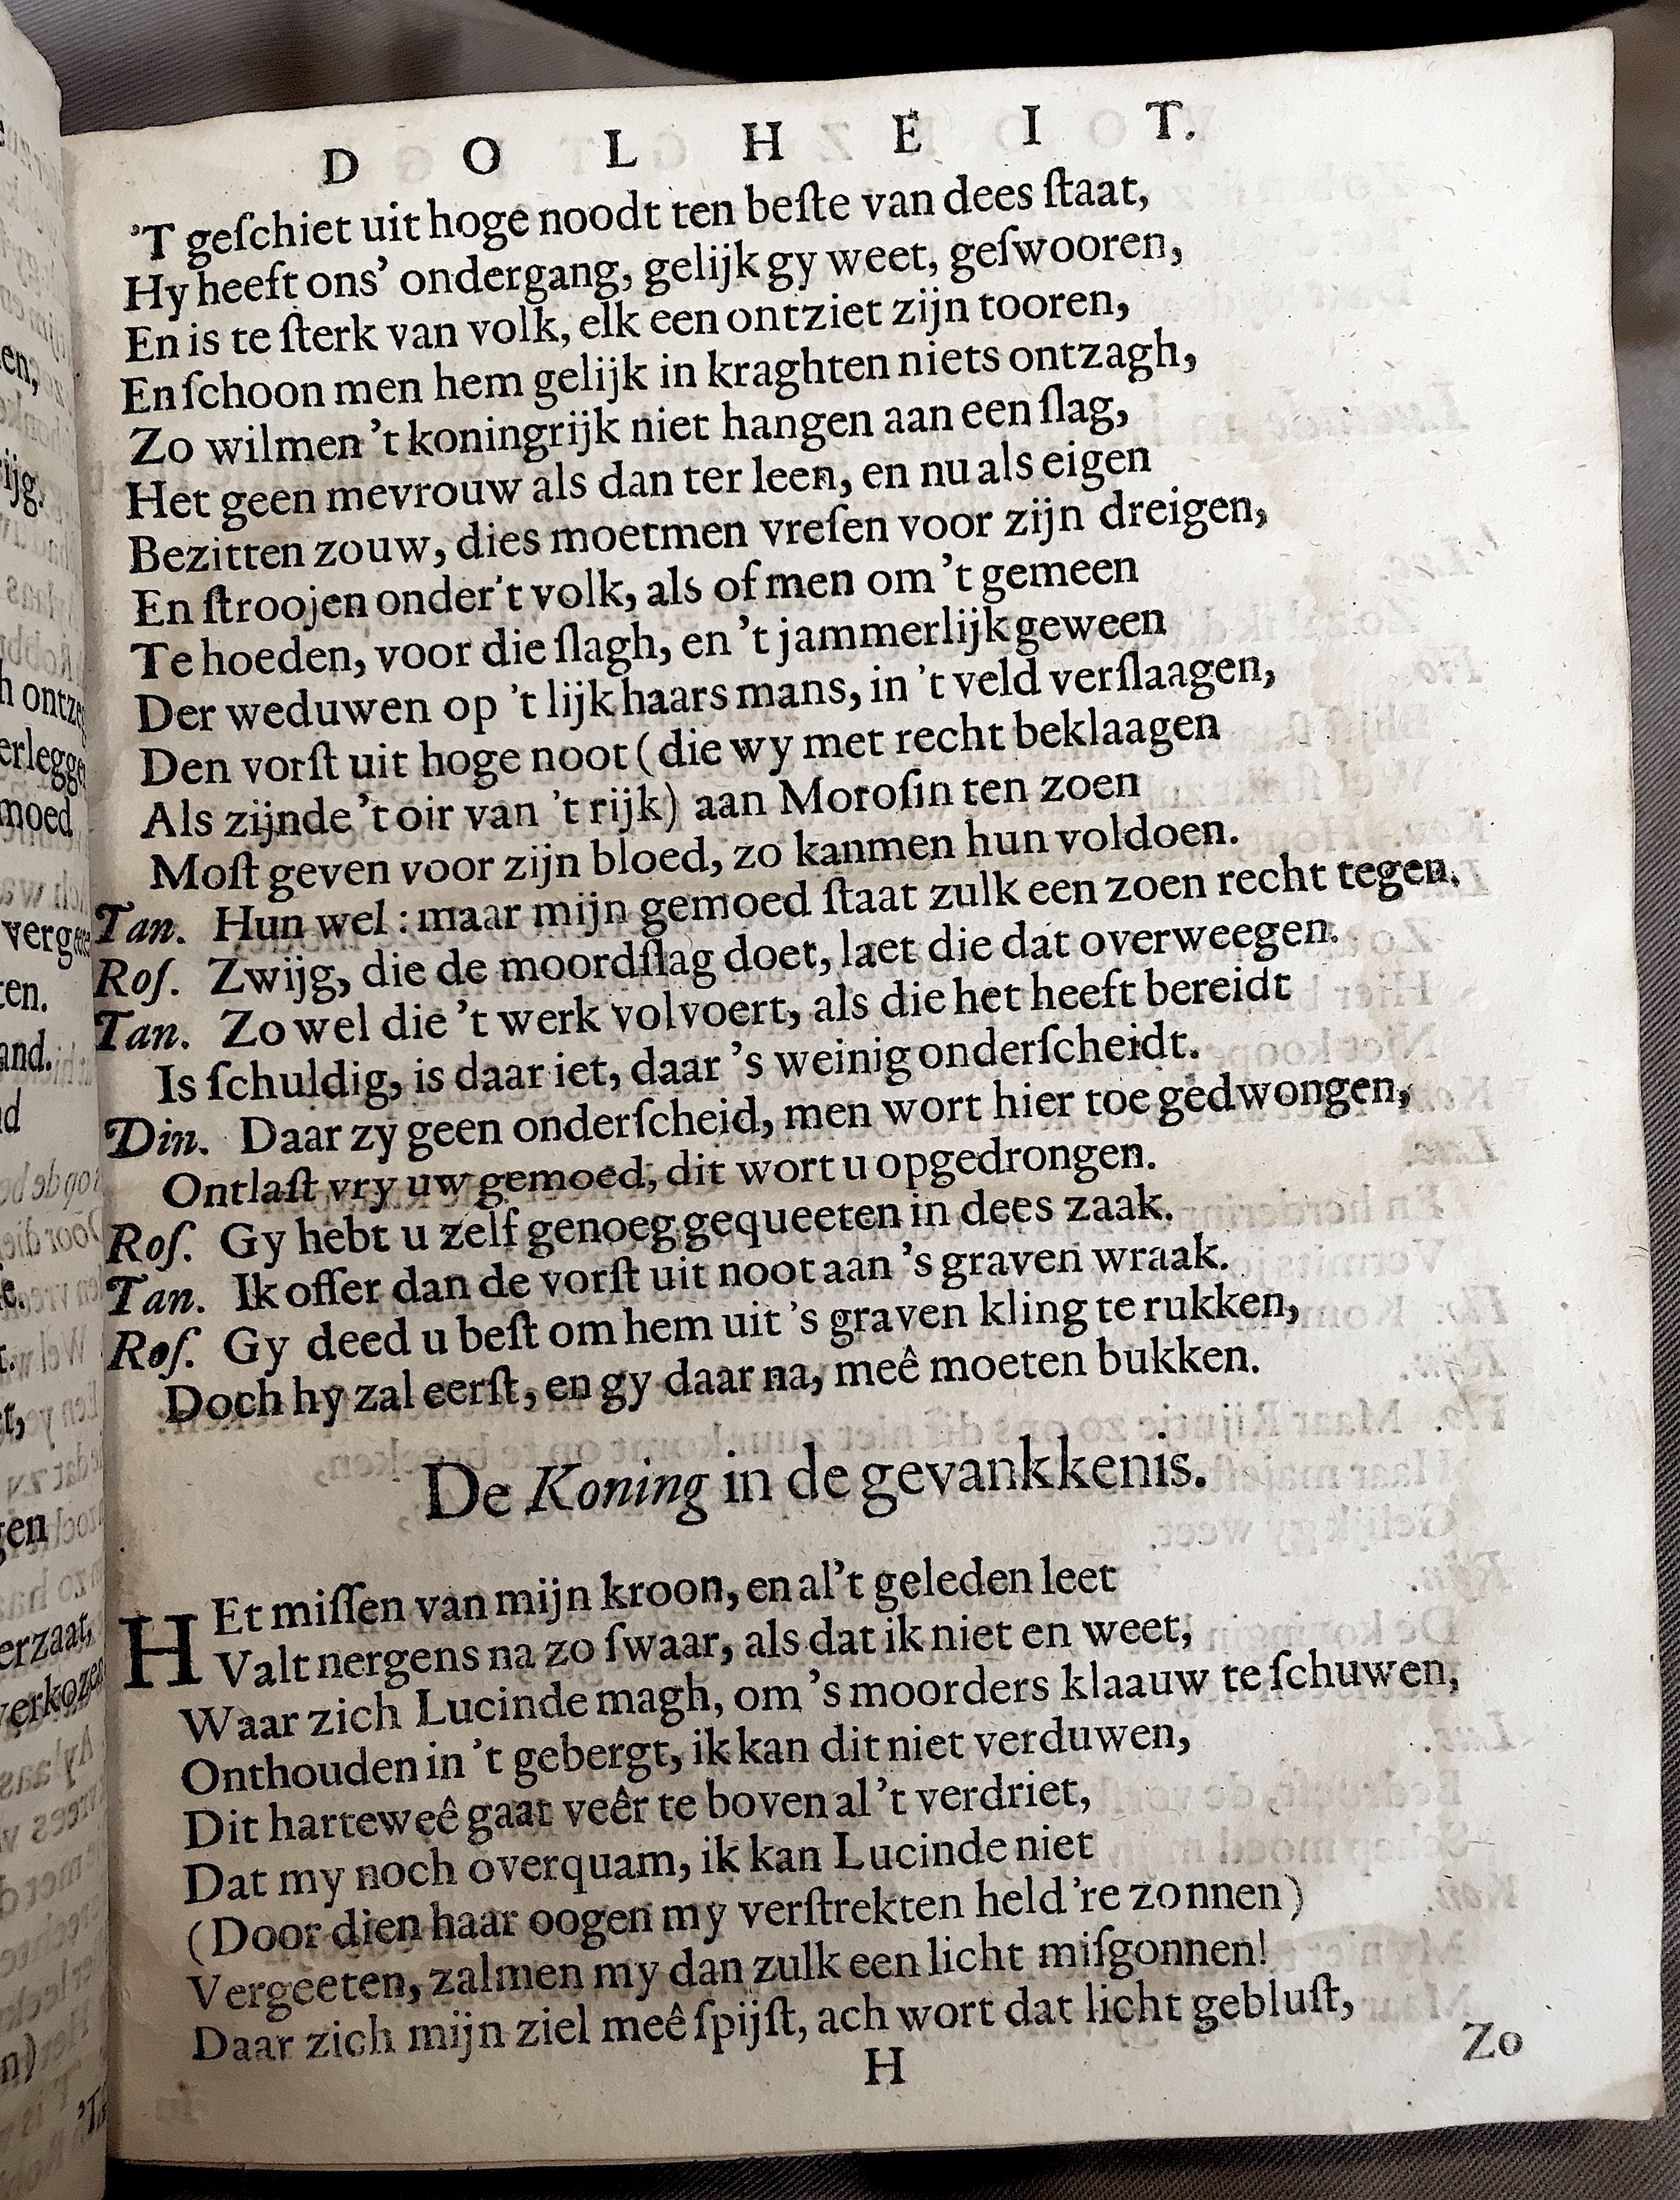 DOLHEIT.
'T geſchiet uit hoge noodt ten beſte van dees ſtaat,
Hy heeft ons' ondergang, gelijk gy weet, geſwooren,
En is te ſterk van volk, elk een ontziet zijn tooren,
En ſchoon men hem gelijk in kraghten niets ontzagh,
Zo wilmen 't koningrijk niet hangen aan een ſlag,
Het geen mevrouw als dan ter leen, en nu als eigen
Bezitten zouw, dies moetmen vreſen voor zijn dreigen,
En ſtroojen onder't volk, als of men om 't gemeen
Te hoeden, voor die ſlagh, en 't jammerlijk geween
Der weduwen op 't lijk haars mans, in 't veld verſlaagen,
Den vorſt uit hoge noot (die wy met recht beklaagen
Als zijnde 't oir van 't rijk) aan Moroſin ten zoen
Moſt geven voor zijn bloed, zo kanmen hun voldoen.
Tan. Hun wel: maar mijn gemoed ſtaat zulk een zoen recht tegen.
Roſ. Zwijg, die de moordſlag doet, laet die dat overweegen.
Tan. Zo wel die 't werk volvoert, als die het heeft bereidt
Is ſchuldig, is daar iet, daar 's weinig onderſcheidt.
Din. Daar zy geen onderſcheid, men wort hier toe gedwongen,
Ontlaſt vry uw gemoed, dit wort u opgedrongen.
Roſ. Gy hebt u zelf genoeg gequeeten in dees zaak.
Tan. Ik offer dan de vorſt uit noot aan 's graven wraak.
Roſ. Gy deed u beſt om hem uit 's graven kling te rukken,
Doch hy zal eerſt, en gy daar na, meê moeten bukken.
De Koning in de gevankkenis.
HEt miſſen van mijn kroon, en al 't geleden leet
Valt nergens na zo ſwaar, als dat ik niet en weet,
Waar zich Lucinde magh, om 's moorders klaauw te ſchuwen,
Onthouden in 't gebergt, ik kan dit niet verduwen,
Dit harteweê gaat veêr te boven al 't verdriet,
Dat my noch overquam, ik kan Lucinde niet
(Door dien haar oogen my verſtrekten held're zonnen)
Vergeeten, zalmen my dan zulk een licht miſgonnen!
Daar zich mijn ziel meê ſpijſt, ach wort dat licht gebluſt,
H
Zo